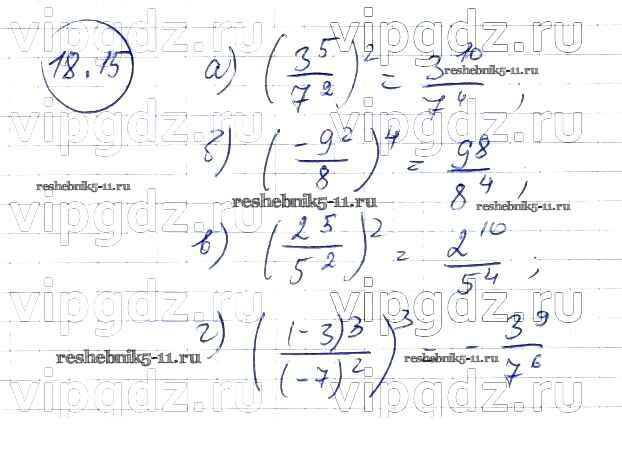 18.15
а) (3^5/7^2)^2 = 3^10/7^4 ;
б) (-9^2/8)^4 = 9^8/8^4 ,
в) (2^5/5^2)^2 = 2^10/5^4 ;
г) ((-3)^3/(-7)^2)^3 = - 3^9/7^6
vipgdz.ru vipgdz.ru
reshebnik5-11.ru
vipgdz.ru vipgdz.ru
reshebnik5-11.ru
reshebnik5-11.ru
reshebnik5-11.ru
vipgdz.ru vipgdz.ru
vipgdz.ru vipgdz.ru
reshebnik5-11.ru
reshebnik5-11.ru
vipgdz.ru vipgdz.ru